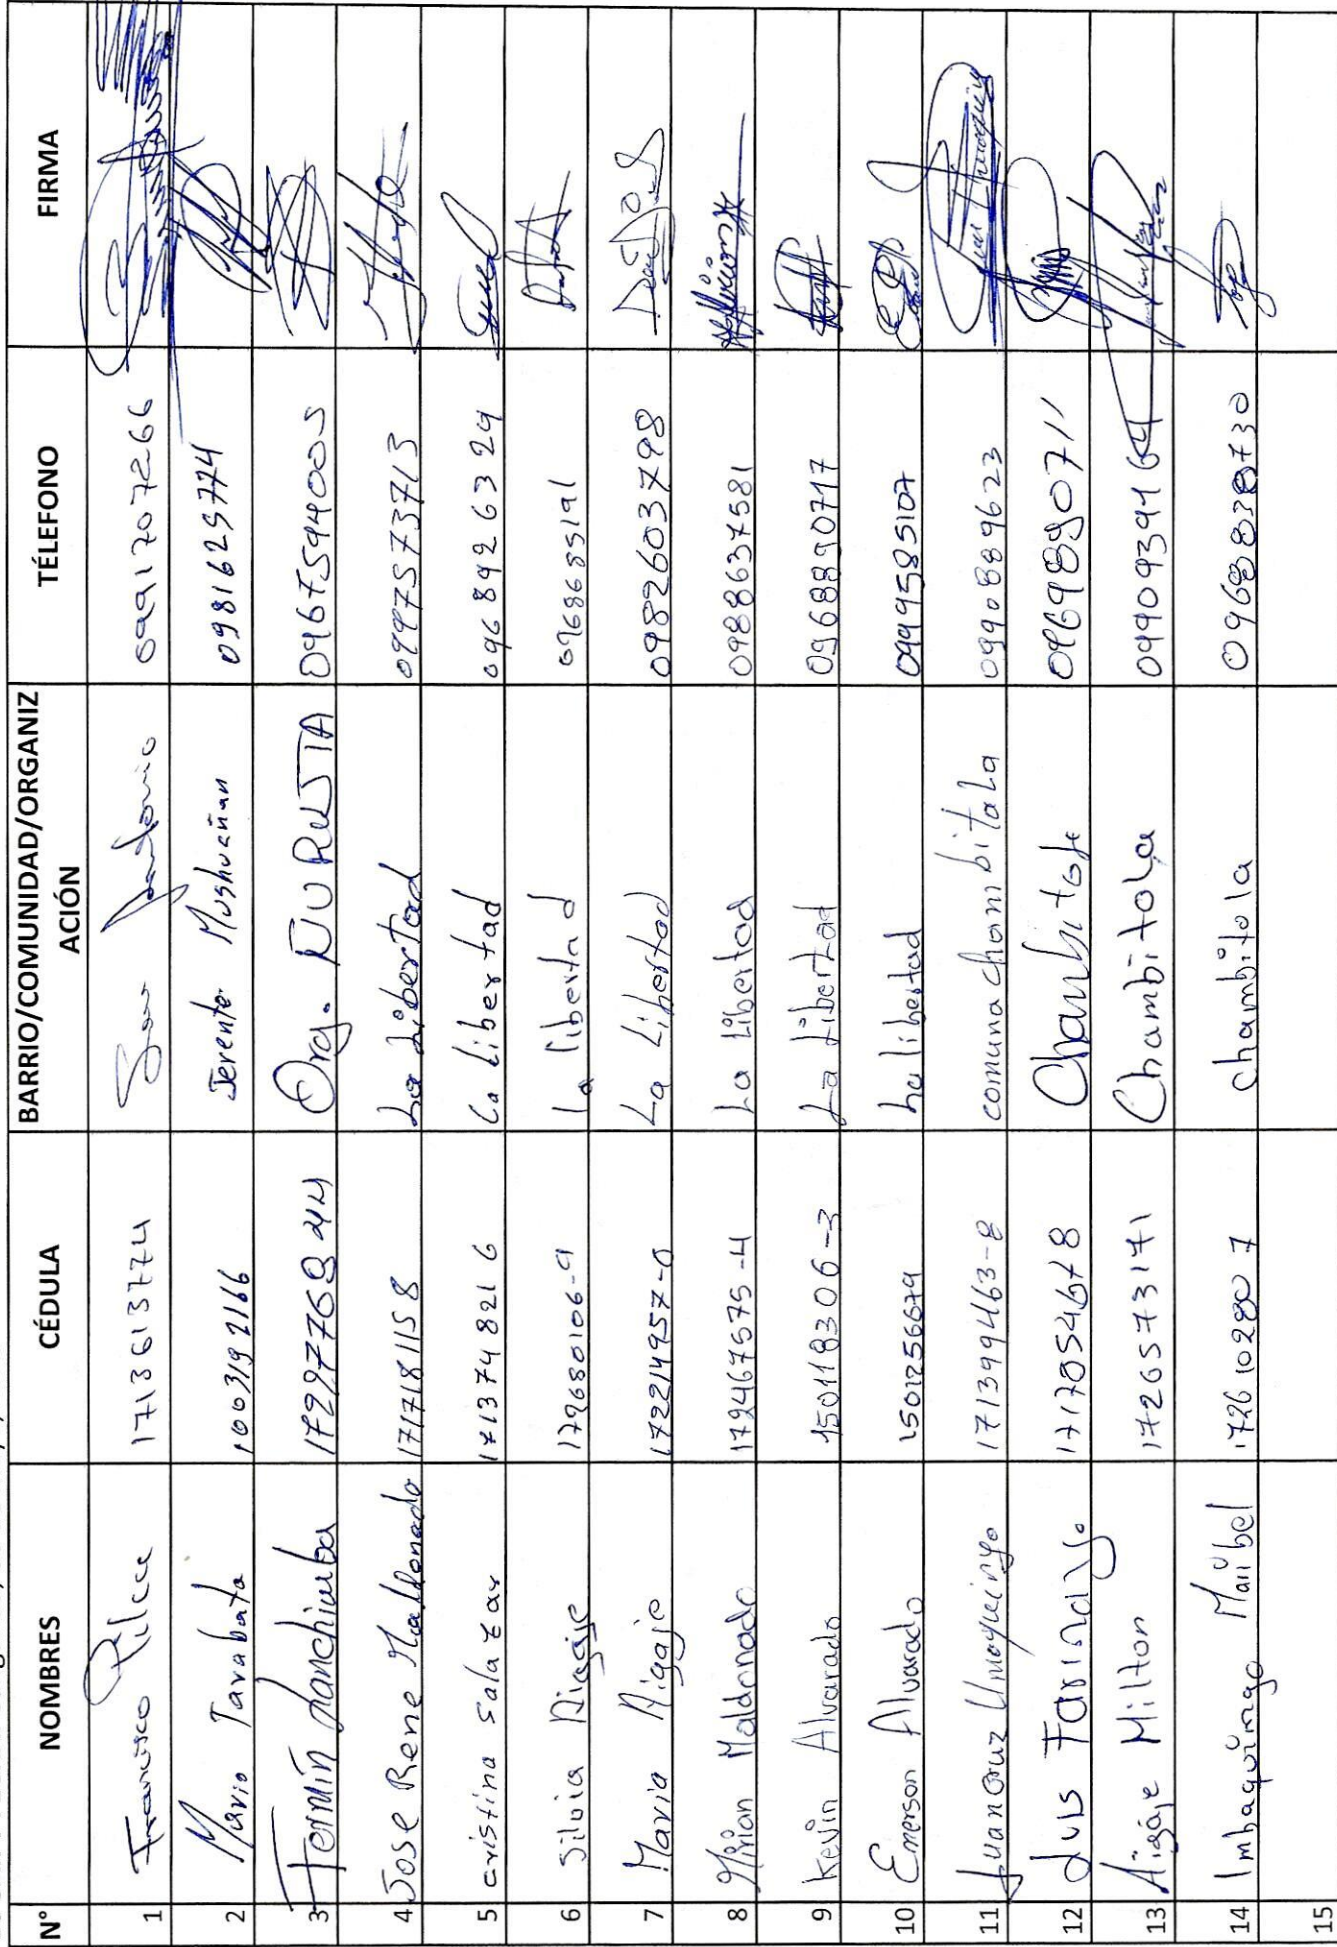 N° NOMBRES CÉDULA BARRIO/COMUNIDAD/ORGANIZ ACIÓN TÉLEFONO FIRMA
1 Francisco Pilca 1713613774 San Antonio 0991207266
2 Mario Tarabata 1003192166 Mushucñan 0981625774
3 Fermín Lanchimba 0967594005
4 Jose Rene Maldonado 1717181158 La Libertad 0997573713
5 cristina Salazar 1713748216 La Libertad 0968926324
6 Silvia Aigaje 172680106-9 la libertad 0968685191
7 Maria Aigaje 172214957-0 La Libertad 0982603798
8 Mirian Maldonado 172467575-4 La Libertad 0988637581
9 Kevin Alvarado 150118306-3 La Libertad 0968890717
10 Emerson Alvarado 1501256679 La libertad 0999585107
11 Juan Cruz Umaquinga 171399463-8 comuna chambitala 0990889623
12 Luis Farinango 1717054678 0969890711
13 Aigaje Milton 1726573171 Chambitola
14 Imbaquingo Maribel 1726102807 chambitola
15